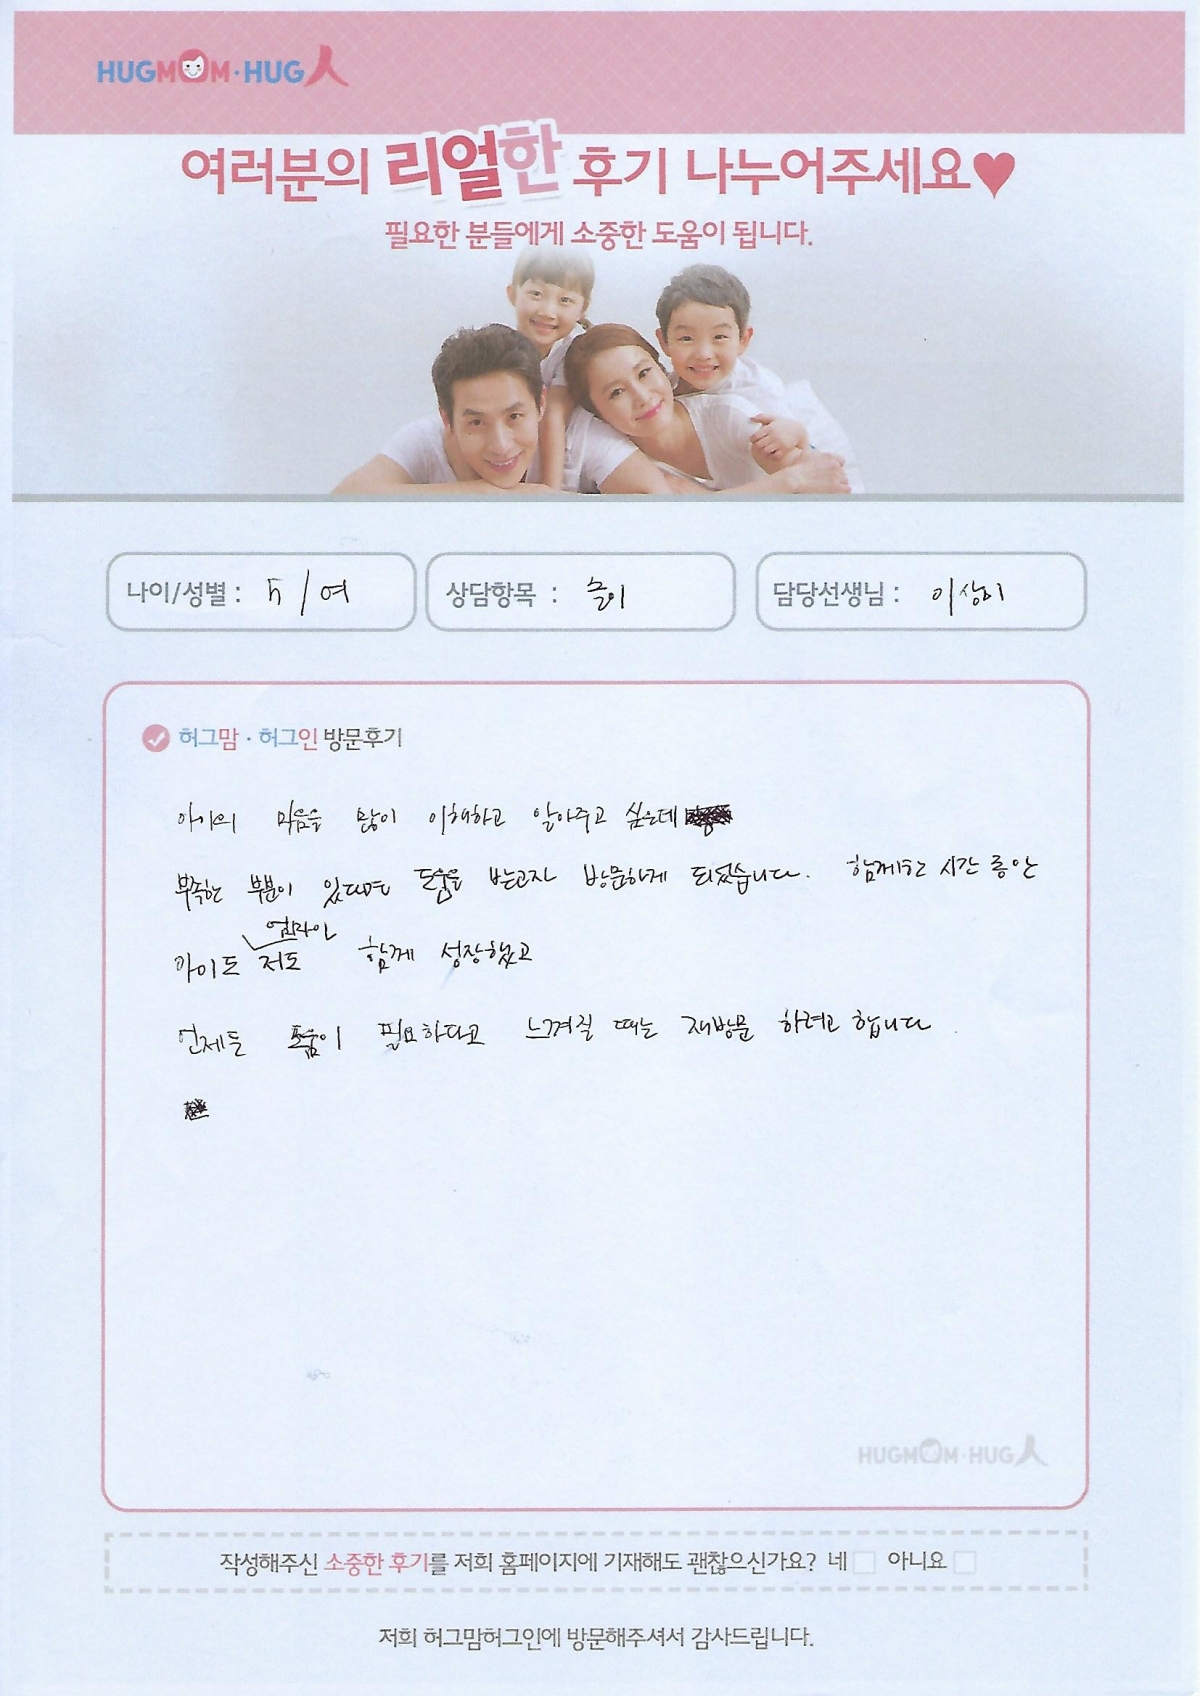 HUGMOM·HUG人
여러분의 리얼한 후기 나누어주세요♥
필요한 분들에게 소중한 도움이 됩니다.
나이/성별 : 5 / 여 상담항목 : 놀이 담당선생님 : 이상미
허그맘 · 허그인 방문후기
아이의 마음을 많이 이해하고 알아주고 싶은데
부족한 부분이 있다면 도움을 받고자 방문하게 되었습니다. 함께한 시간 동안
엄마인
아이도 저도 함께 성장했고
언제든 도움이 필요하다고 느껴질 때는 재방문 하려고 합니다.
HUGMOM·HUG人
작성해주신 소중한 후기를 저희 홈페이지에 기재해도 괜찮으신가요? 네 아니요
저희 허그맘허그인에 방문해주셔서 감사드립니다.